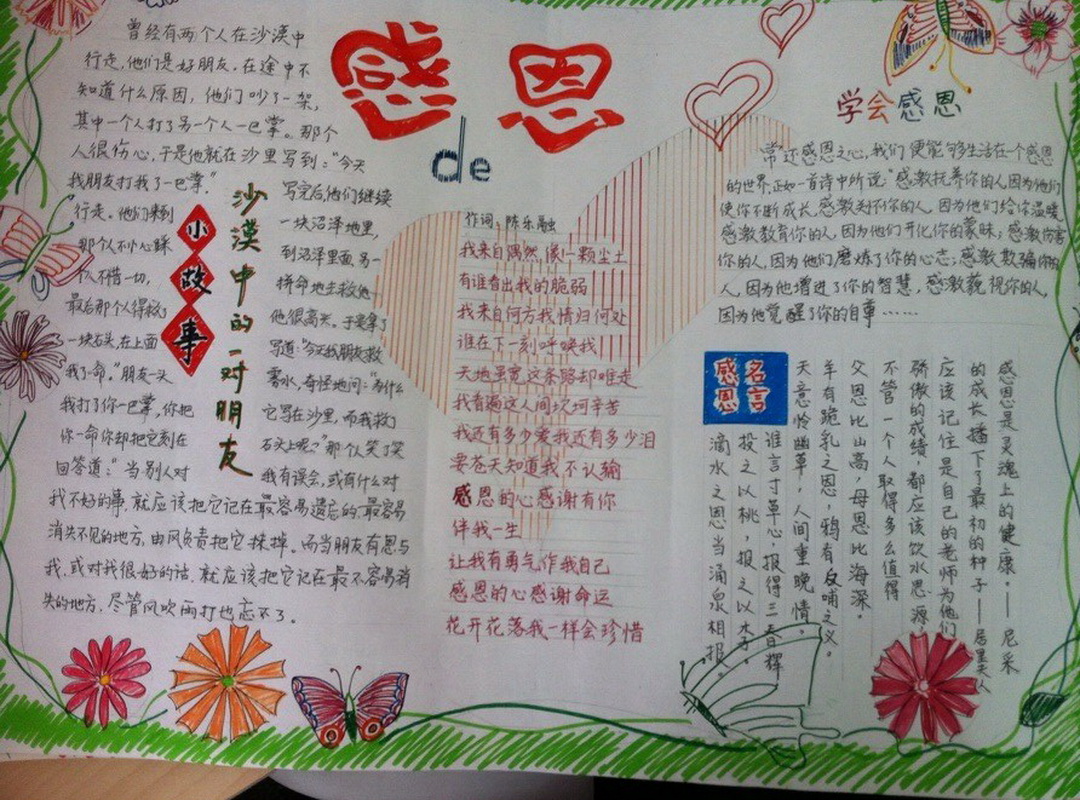 感恩
de
曾经有两个人在沙漠中
行走,他们是好朋友。在途中不
知道什么原因,他们吵了一架,
其中一个人打了另一个人一巴掌。那个
人很伤心,于是他就在沙里写到:“今天
我朋友打我了一巴掌。”
写完后他们继续
行走。他们来到
一块沼泽地里,
那个人不小心踩
到沼泽里面,另一
个人不惜一切,
拼命地去救他
最后那个人得救了
他很高兴。于是拿了
一块石头,在上面
写道:“今天我朋友救
我了一命。”朋友一头
雾水,奇怪地问:“为什么
我打了你一巴掌,你把
它写在沙里,而我救了
你一命你却把它刻在
石头上呢?”那个人笑了笑
回答道:“当别人对
我有误会,或有什么对
我不好的事,就应该把它记在最容易遗忘的,最容易
消失不见的地方,由风负责把它抹掉。而当朋友有恩与
我,或对我很好的话,就应该把它记在最不容易消
失的地方,尽管风吹雨打也忘不了。
小故事
沙漠中的一对朋友
作词:陈乐融
我来自偶然,像一颗尘土
有谁看出我的脆弱
我来自何方我情归何处
谁在下一刻呼唤我
天地虽宽这条路却难走
我看遍这人间坎坷辛苦
我还有多少爱我还有多少泪
要苍天知道我不认输
感恩的心感谢有你
伴我一生
让我有勇气作我自己
感恩的心感谢命运
花开花落我一样会珍惜
学会感恩
常还感恩之心,我们便能够生活在一个感恩
的世界,正如一首诗中所说:“感激抚养你的人,因为他们
使你不断成长,感激关怀你的人,因为他们给你温暖
感激教育你的人,因为他们开化你的蒙昧;感激伤害
你的人,因为他们磨炼了你的心志;感激欺骗你的
人,因为他增进了你的智慧,感激藐视你的人,
因为他觉醒了你的自尊……
感恩名言
感恩是灵魂上的健康。——尼采
的成长播下了最初的种子——居里夫人
应该记住是自己的老师为他们
骄傲的成绩,都应该饮水思源
不管一个人取得多么值得
父恩比山高,母恩比海深。
羊有跪乳之恩,鸦有反哺之义。
天意怜幽草,人间重晚情。
谁言寸草心,报得三春辉
投之以桃,报之以李。
滴水之恩当涌泉相报。